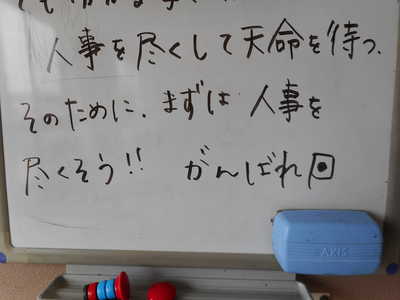 人事を尽くして天命を待つ、
そのために、まずは 人事を
尽くそう!! がんばれ
AXIS